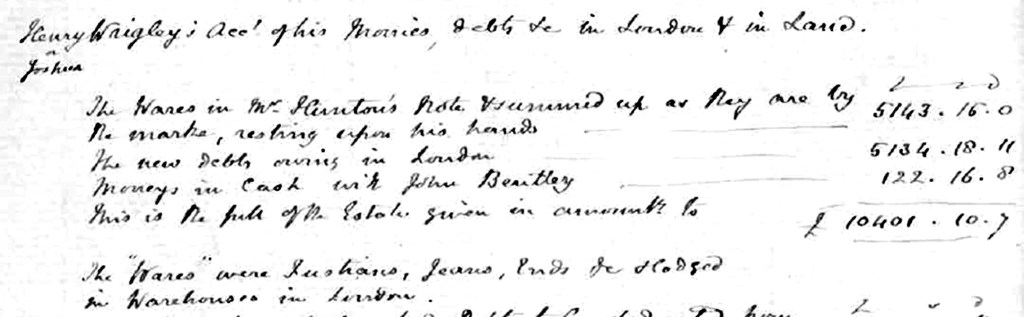 Henry Wrigley's Acct of his Monies, debts &c in London & in Land.
or
Joshua
£ s d
The Wares in Mr. Hunton's Note & summed up as they are by
the marke, resting upon his hands 5143. 15. 0
The new debts owing in London 5134. 18. 11
Moneys in Cash with John Bentley 122. 16. 8
This is the full of the Estate given in amounts to £ 10401. 10. 7
The "Wares" were Fustians, Jeans, Ends &c lodged
in Warehouses in London.
£ s d